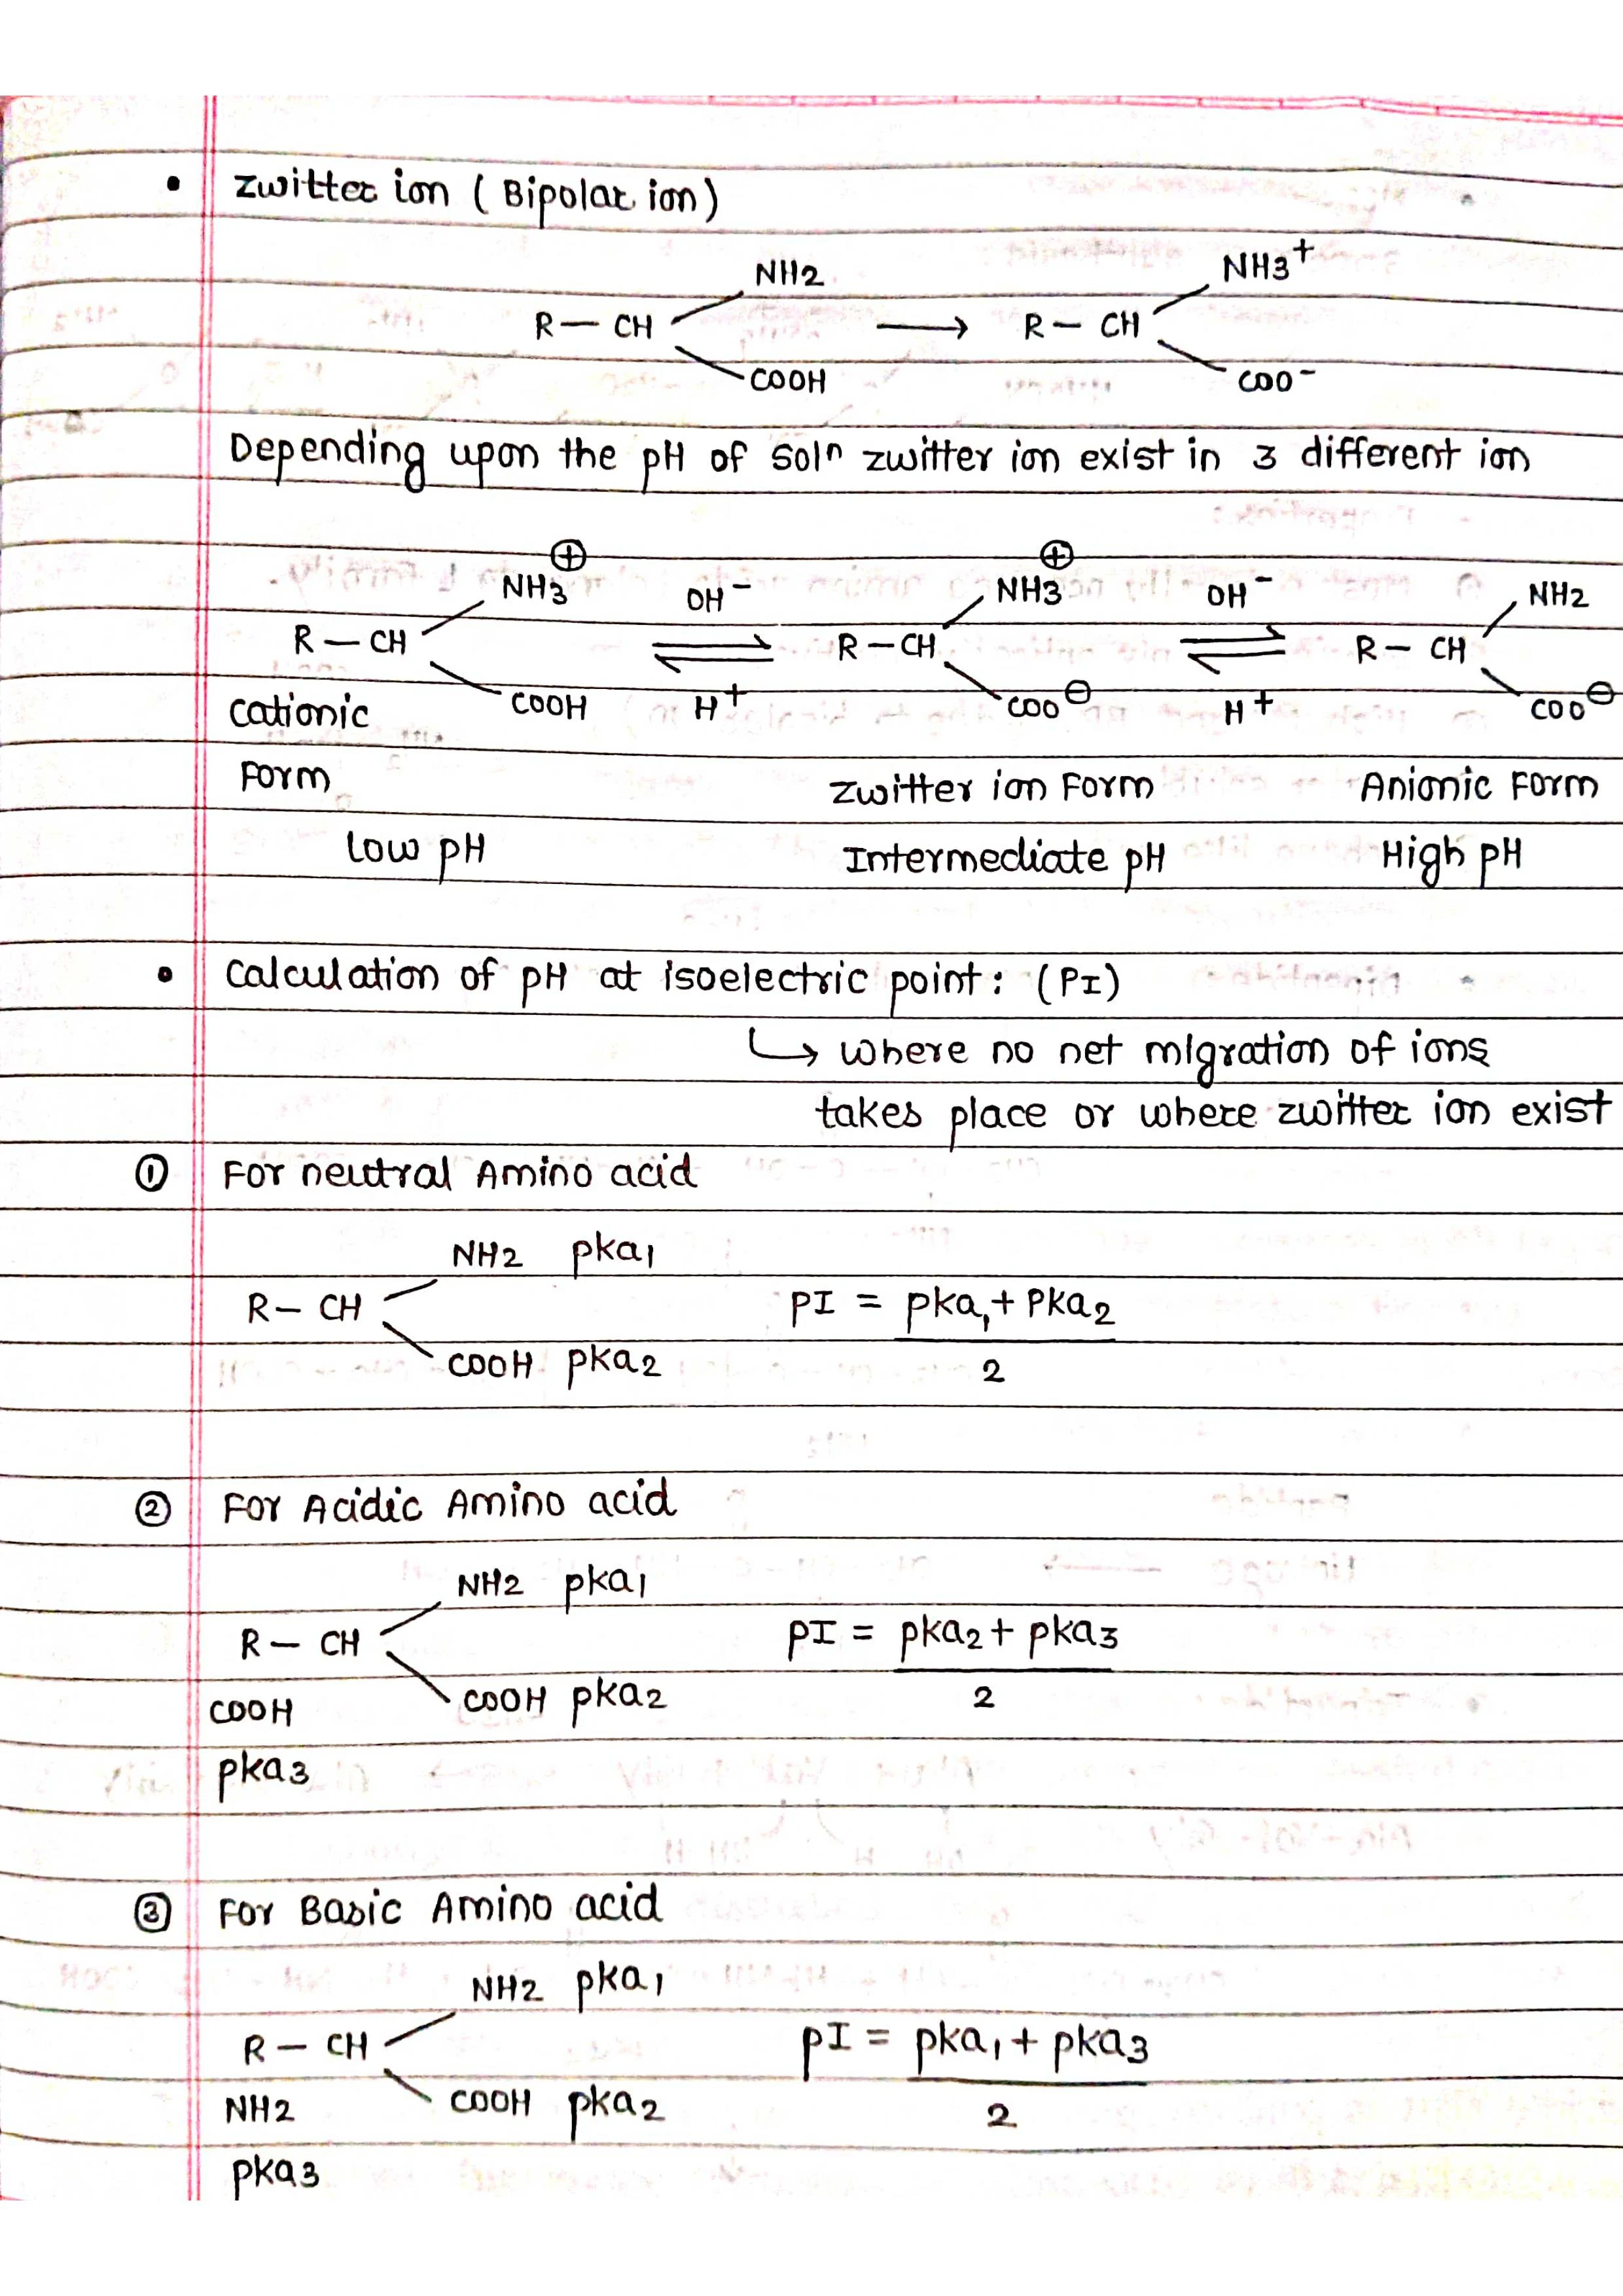 • Zwitter ion ( Bipolar ion )
NH2 NH3+
R — CH ⟶ R — CH
COOH COO-
Depending upon the pH of solⁿ zwitter ion exist in 3 different ion
NH3⊕ OH- NH3⊕ OH- NH2
R — CH ⇌ R — CH ⇌ R — CH
COOH H+ COO⊖ H+ COO⊖
Cationic
Form Zwitter ion Form Anionic Form
Low pH Intermediate pH High pH
• Calculation of pH at isoelectric point: (PI)
↳ where no net migration of ions
takes place or where zwitter ion exist
① For neutral Amino acid
NH2 pka1
R — CH PI = pka1 + Pka2
COOH pka2 2
② For Acidic Amino acid
NH2 pka1
R — CH pI = pka2 + pka3
COOH COOH pka2 2
pka3
③ For Basic Amino acid
NH2 pka1
R — CH pI = pka1 + pka3
NH2 COOH pka2 2
pka3